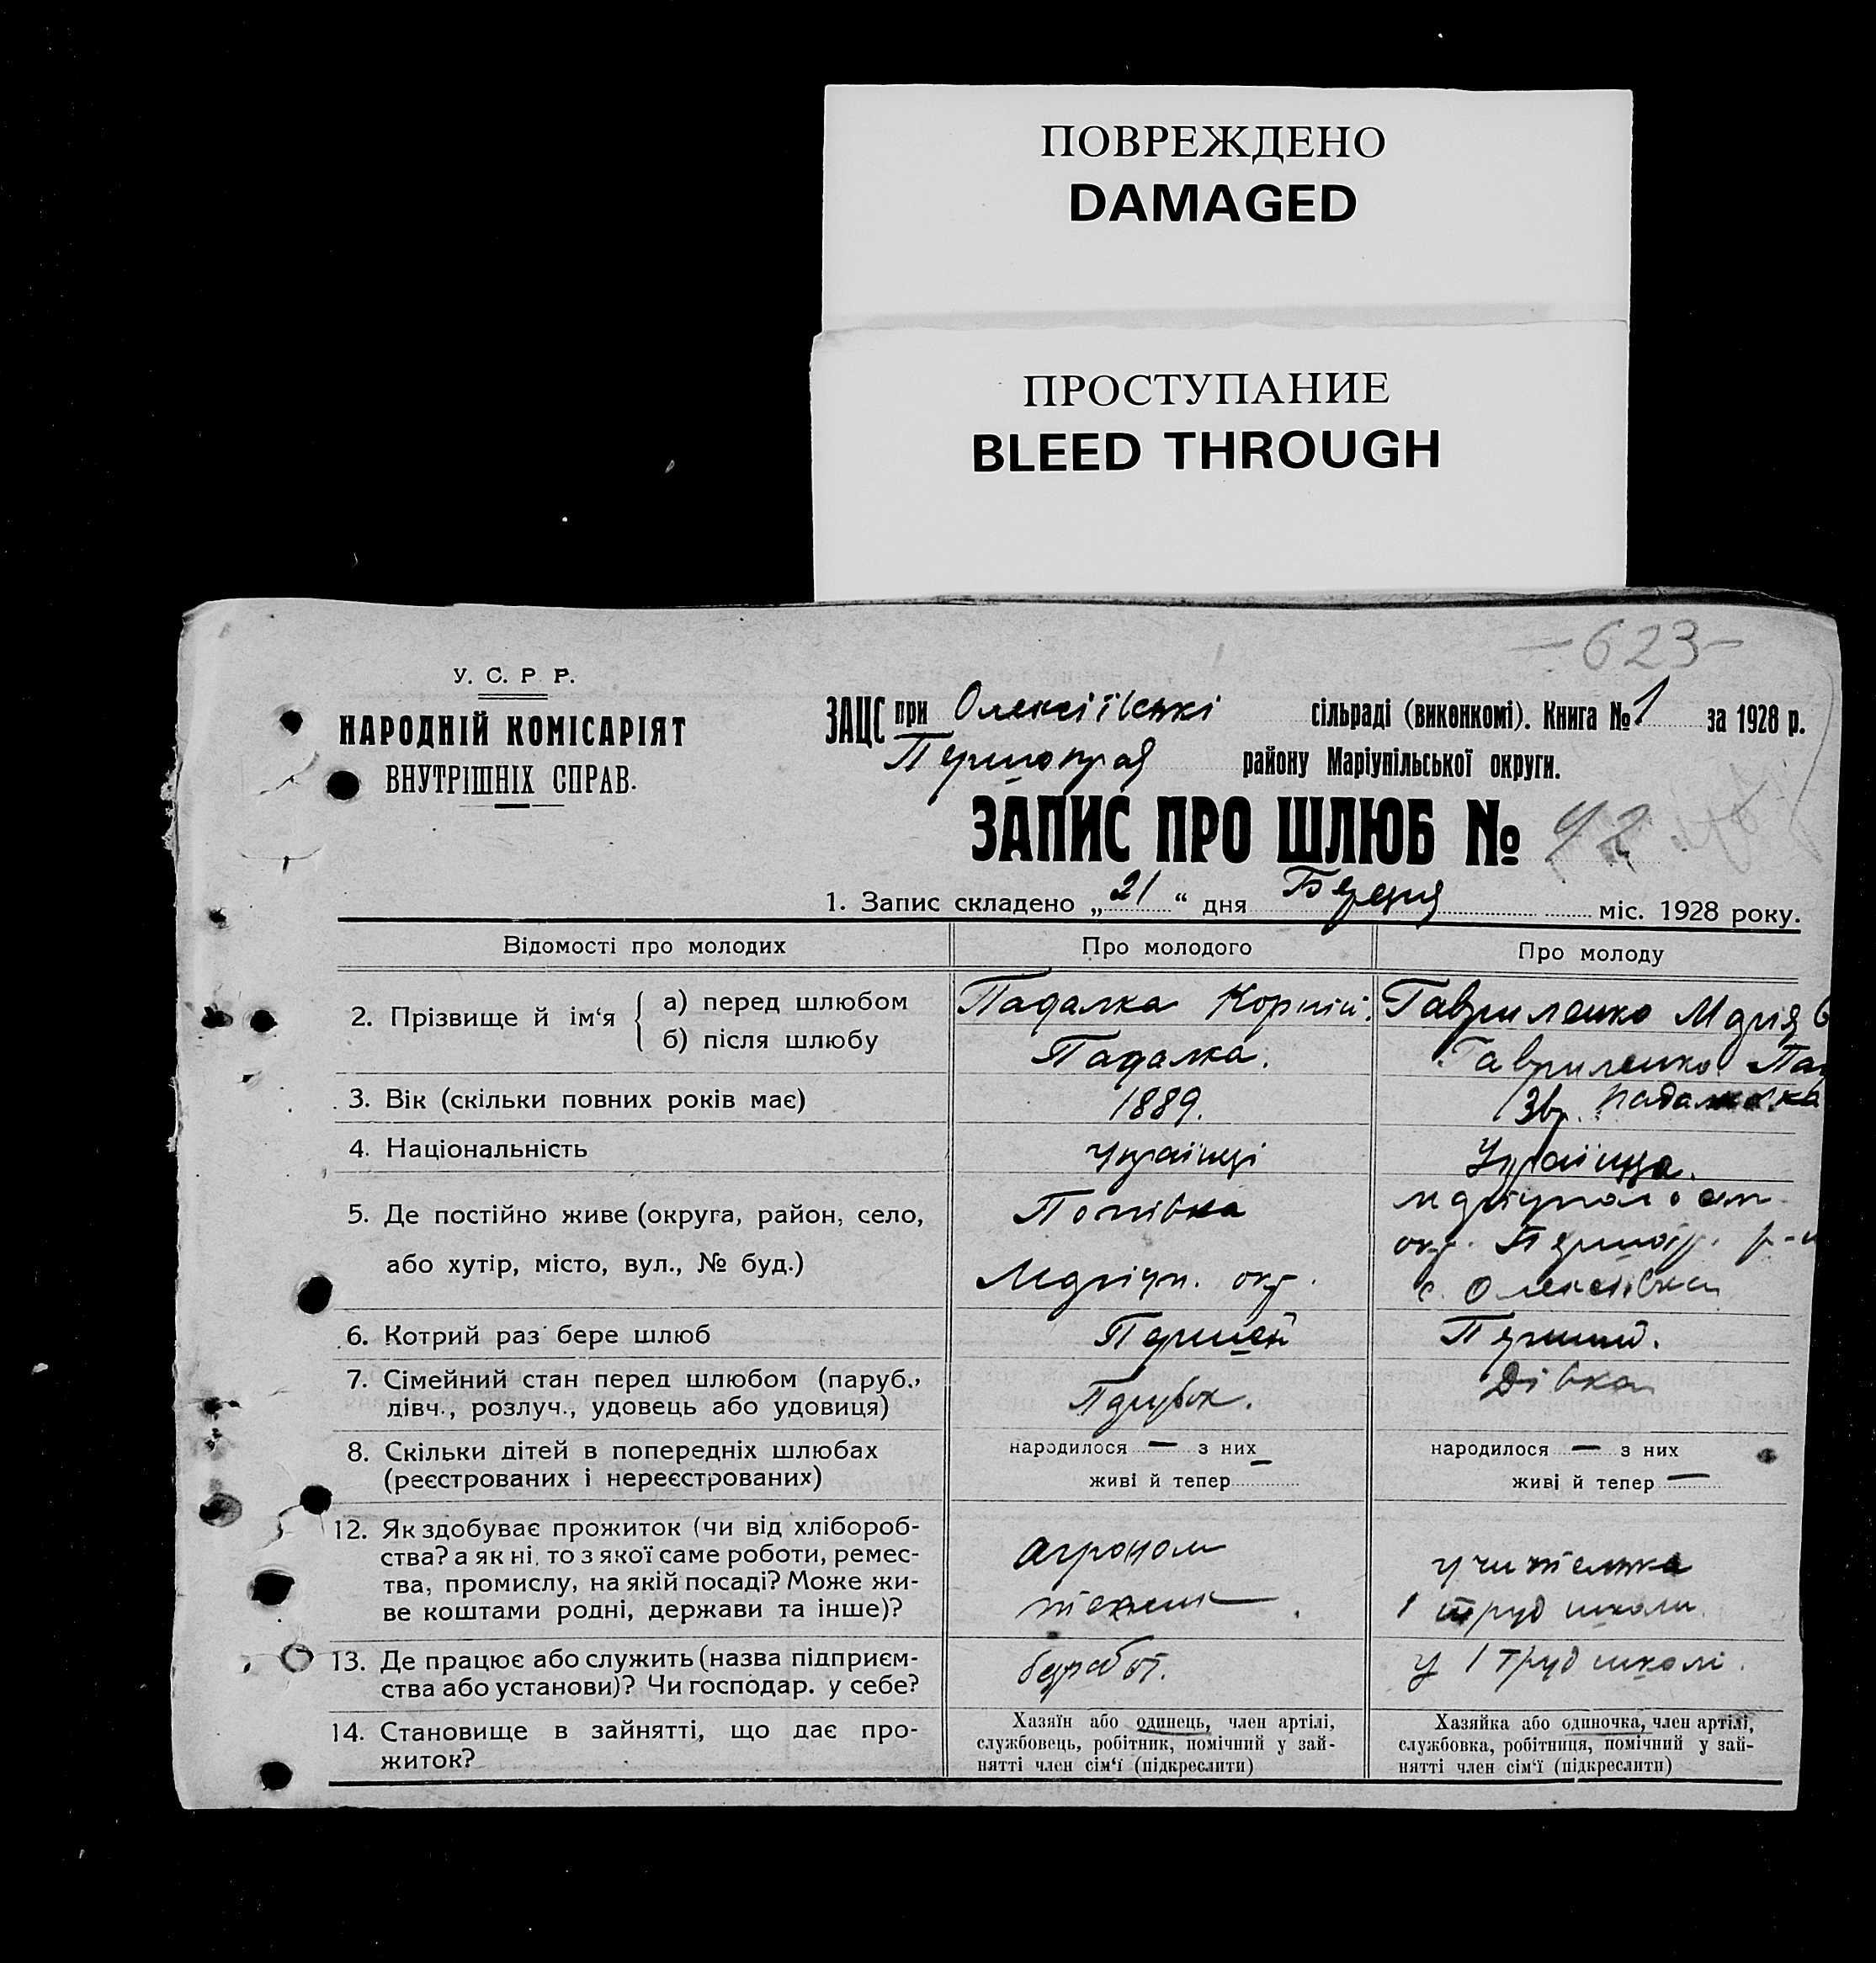 ПОВРЕЖДЕНО
DAMAGED
ПРОСТУПАНИЕ
BLEED THROUGH
-623-
У. С. Р. Р.
НАРОДНІЙ КОМІСАРІЯТ
ВНУТРІШНІХ СПРАВ.
ЗАЦС при Олексіївські сільраді (виконкомі). Книга № 1 за 1928 р.
району Маріупільської округи.
ЗАПИС ПРО ШЛЮБ №
1. Запис складено „21“ дня Березня міс. 1928 року.
Відомості про молодих Про молодого Про молоду
2. Прізвище й ім‘я
а) перед шлюбом Падалка Корній. Гавриленко Марія
б) після шлюбу Падалка. Гавриленко
3. Вік (скільки повних років має) 1889. Падалка
4. Національність Українці Українца.
5. Де постійно живе (округа, район, село,
або хутір, місто, вул., № буд.)
Попівка
Маріуп. окр.
окр. р-н
с. Олексіївка
6. Котрий раз бере шлюб Першей Перший.
7. Сімейний стан перед шлюбом (паруб.,
дівч., розлуч., удовець або удовиця)
Парубок. Дівка
8. Скільки дітей в попередніх шлюбах
(реєстрованих і нереєстрованих)
народилося — з них —
живі й тепер
народилося — з них
живі й тепер —
12. Як здобуває прожиток (чи від хлібороб-
ства? а як ні, то з якої саме роботи, ремес-
тва, промислу, на якій посаді? Може жи-
ве коштами родні, держави та інше)?
агроном
технік.
учителька
1 труд школи.
13. Де працює або служить (назва підприєм-
ства або установи)? Чи господар. у себе?
безробот.
у 1 труд школі.
14. Становище в зайнятті, що дає про-
житок?
Хазяїн або одинець, член артілі,
службовець, робітник, помічний у зай-
нятті член сім‘ї (підкреслити)
Хазяйка або одиночка, член артілі,
службовка, робітниця, помічний у зай-
нятті член сім‘ї (підкреслити)